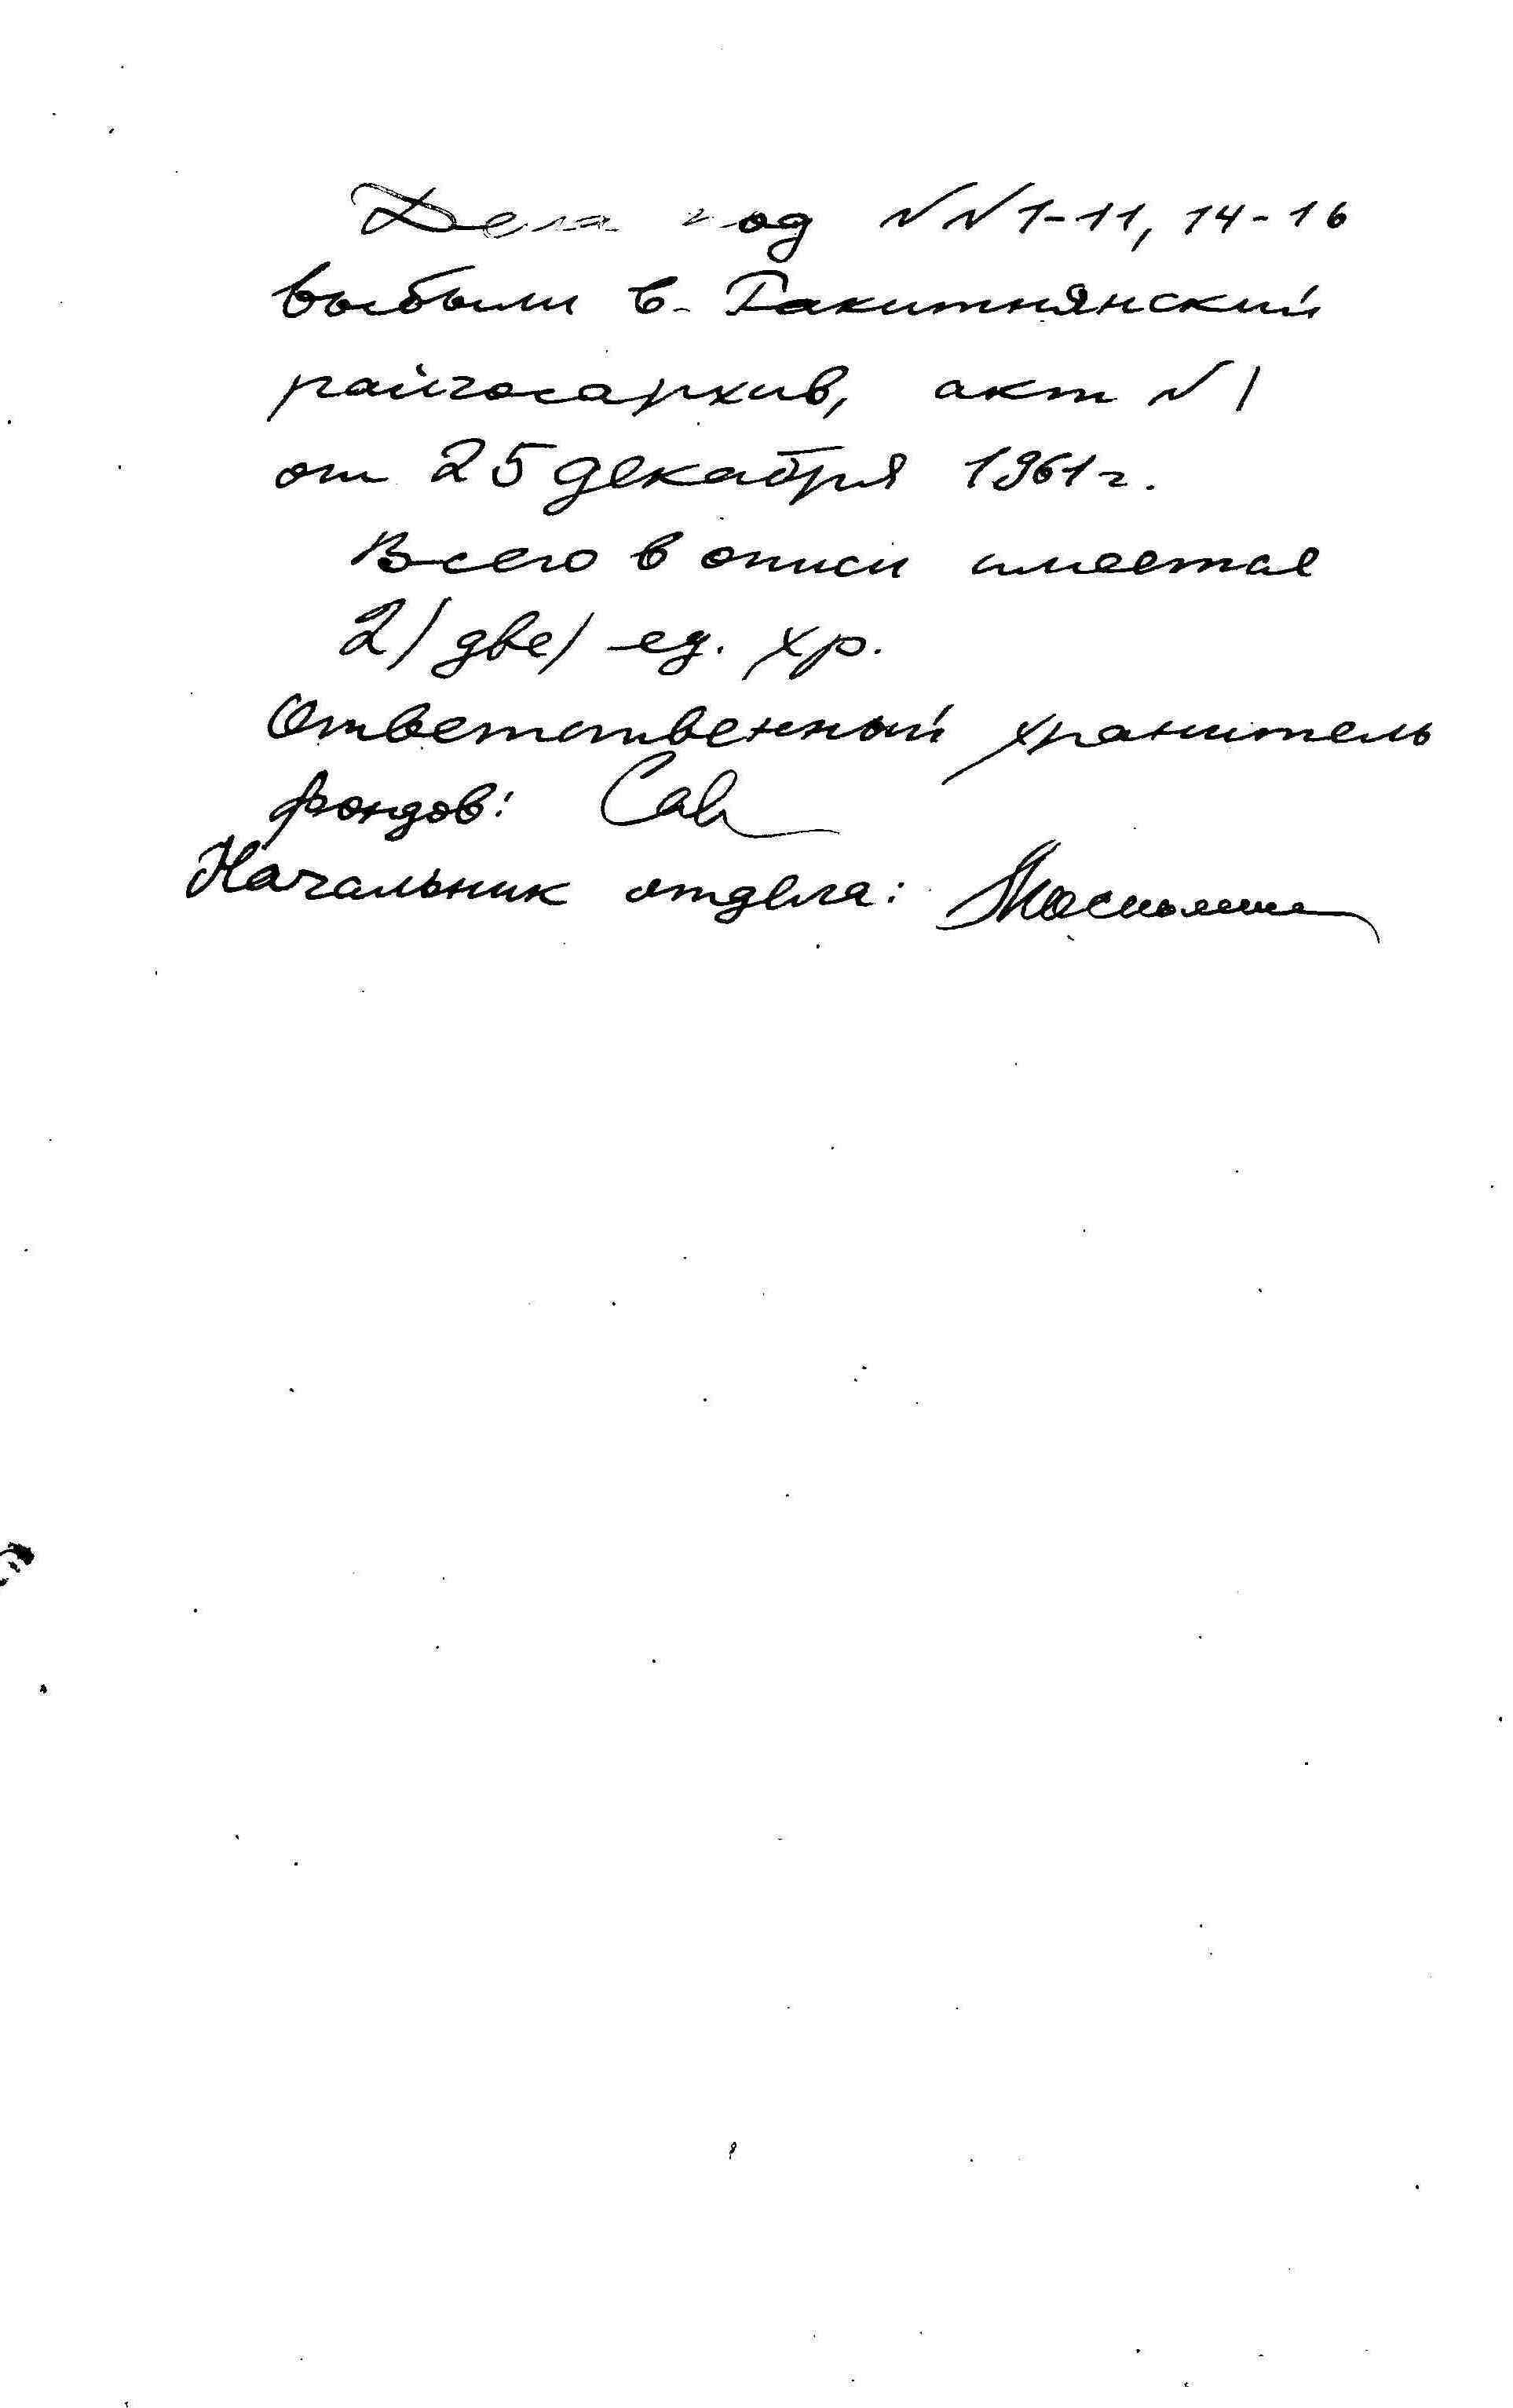 Дела под NN 1-11, 14-16
выбыли в Ракитнянский
райгосархив, акт N 1
от 25 декабря 1961 г.
Всего в описи имеется
2/две/ ед. хр.
Ответственный хранитель
фондов:
Начальник отдела: